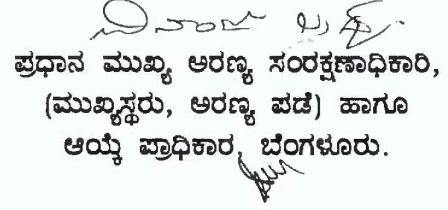 ಪ್ರಧಾನ ಮುಖ್ಯ ಅರಣ್ಯ ಸಂರಕ್ಷಣಾಧಿಕಾರಿ,
(ಮುಖ್ಯಸ್ಥರು, ಅರಣ್ಯ ಪಡೆ) ಹಾಗೂ
ಆಯ್ಕೆ ಪ್ರಾಧಿಕಾರ, ಬೆಂಗಳೂರು.